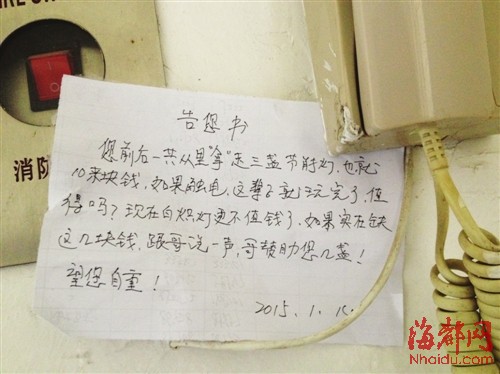 消防
告您书
您前后一共从里"拿"走三盏节能灯,也就
10来块钱,如果触电,这辈子就玩完了,值
得吗?现在白炽灯更不值钱了,如果实在缺
这几块钱,跟哥说一声,哥赞助您几盏!
望您自重!
2015.1.
海都网
Nhaidu.com